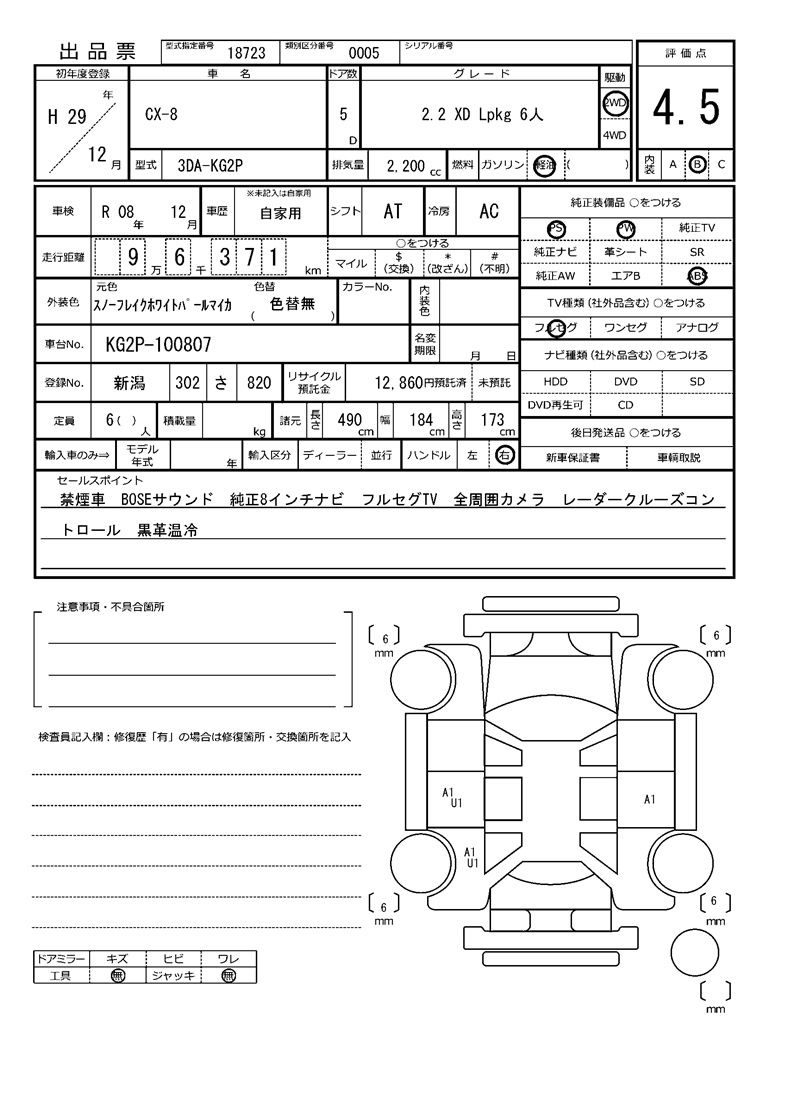 出品票 型式指定番号 18723 類別区分番号 0005 シリアル番号
評価点
4.5
内装 A B C
初年度登録 車名 ドア数 グレード 駆動
H 29 年 12 月 CX-8 5 D 2.2 XD Lpkg 6人 2WD
4WD
型式 3DA-KG2P 排気量 2,200 cc 燃料 ガソリン 軽油 ( )
車検 R 08 年 12 月 車歴 ※未記入は自家用 自家用 シフト AT 冷房 AC
走行距離 9 万 6 千 3 7 1 km ○をつける
マイル $ (交換) * (改ざん) # (不明)
外装色 元色 色替 カラーNo. 内装色
スノーフレイクホワイトパールマイカ ( 色替無 )
車台No. KG2P-100807 名変期限 月 日
登録No. 新潟 302 さ 820 リサイクル預託金 12,860円預託済 未預託
定員 6 ( ) 人 積載量 kg 諸元 長さ 490 cm 幅 184 cm 高さ 173 cm
輸入車のみ⇒ モデル年式 年 輸入区分 ディーラー 並行 ハンドル 左 右
純正装備品 ○をつける
PS PW 純正TV
純正ナビ 革シート SR
純正AW エアB ABS
TV種類 (社外品含む) ○をつける
フルセグ ワンセグ アナログ
ナビ種類 (社外品含む) ○をつける
HDD DVD SD
DVD再生可 CD
後日発送品 ○をつける
新車保証書 車輌取説
セールスポイント
禁煙車 BOSEサウンド 純正8インチナビ フルセグTV 全周囲カメラ レーダークルーズコン
トロール 黒革温冷
注意事項・不具合箇所
検査員記入欄：修復歴「有」の場合は修復箇所・交換箇所を記入
ドアミラー キズ ヒビ ワレ
工具 無 ジャッキ 無
6 mm
6 mm
A1
U1
A1
A1
U1
6 mm
6 mm
mm